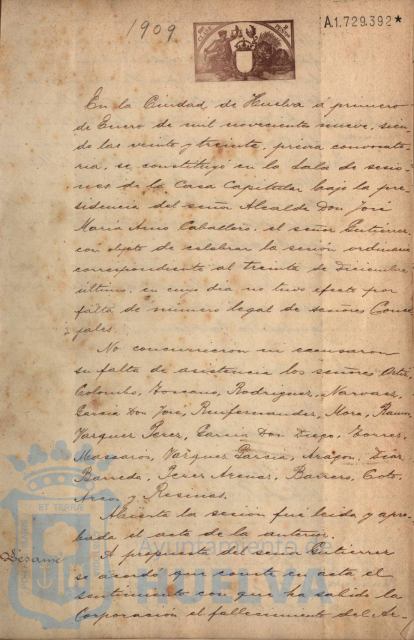 1909
A1.729.392*
En la Ciudad de Huelva á primero
de Enero de mil novecientos nueve, sien
do las veinte y treinta, previa convocato
ria, se constituyó en la Sala de sesio
nes de la Casa Capitular bajo la pre
sidencia del señor Alcalde Don José
Maria Amo Caballero, el señor Gutierrez
con objeto de celebrar la sesión ordinaria
correspondiente al treinta de diciembre
último, en cuyo dia no tuvo efecto por
falta de número legal de señores Conce
jales.
No concurrieron ni excusaron
su falta de asistencia los señores Ortiz,
Colombo, Toscano, Rodriguez, Narvaez,
Garcia Don José, Mora,
Vazquez Perez, Garcia Don Diego, Torres,
Mascarós, Vazquez Garcia, Aragon, Diaz
Barreda, Perez Arenas, Barrero, Coto,
y Resinas.
Abierta la sesión fué leida y apro
bada el acta de la anterior.
Pésame
A propuesta del señor Gutierrez
se acordó que conste en acta el
sentimiento con que ha sabido la
Corporación el fallecimiento del
Ayuntamiento de
HUELVA